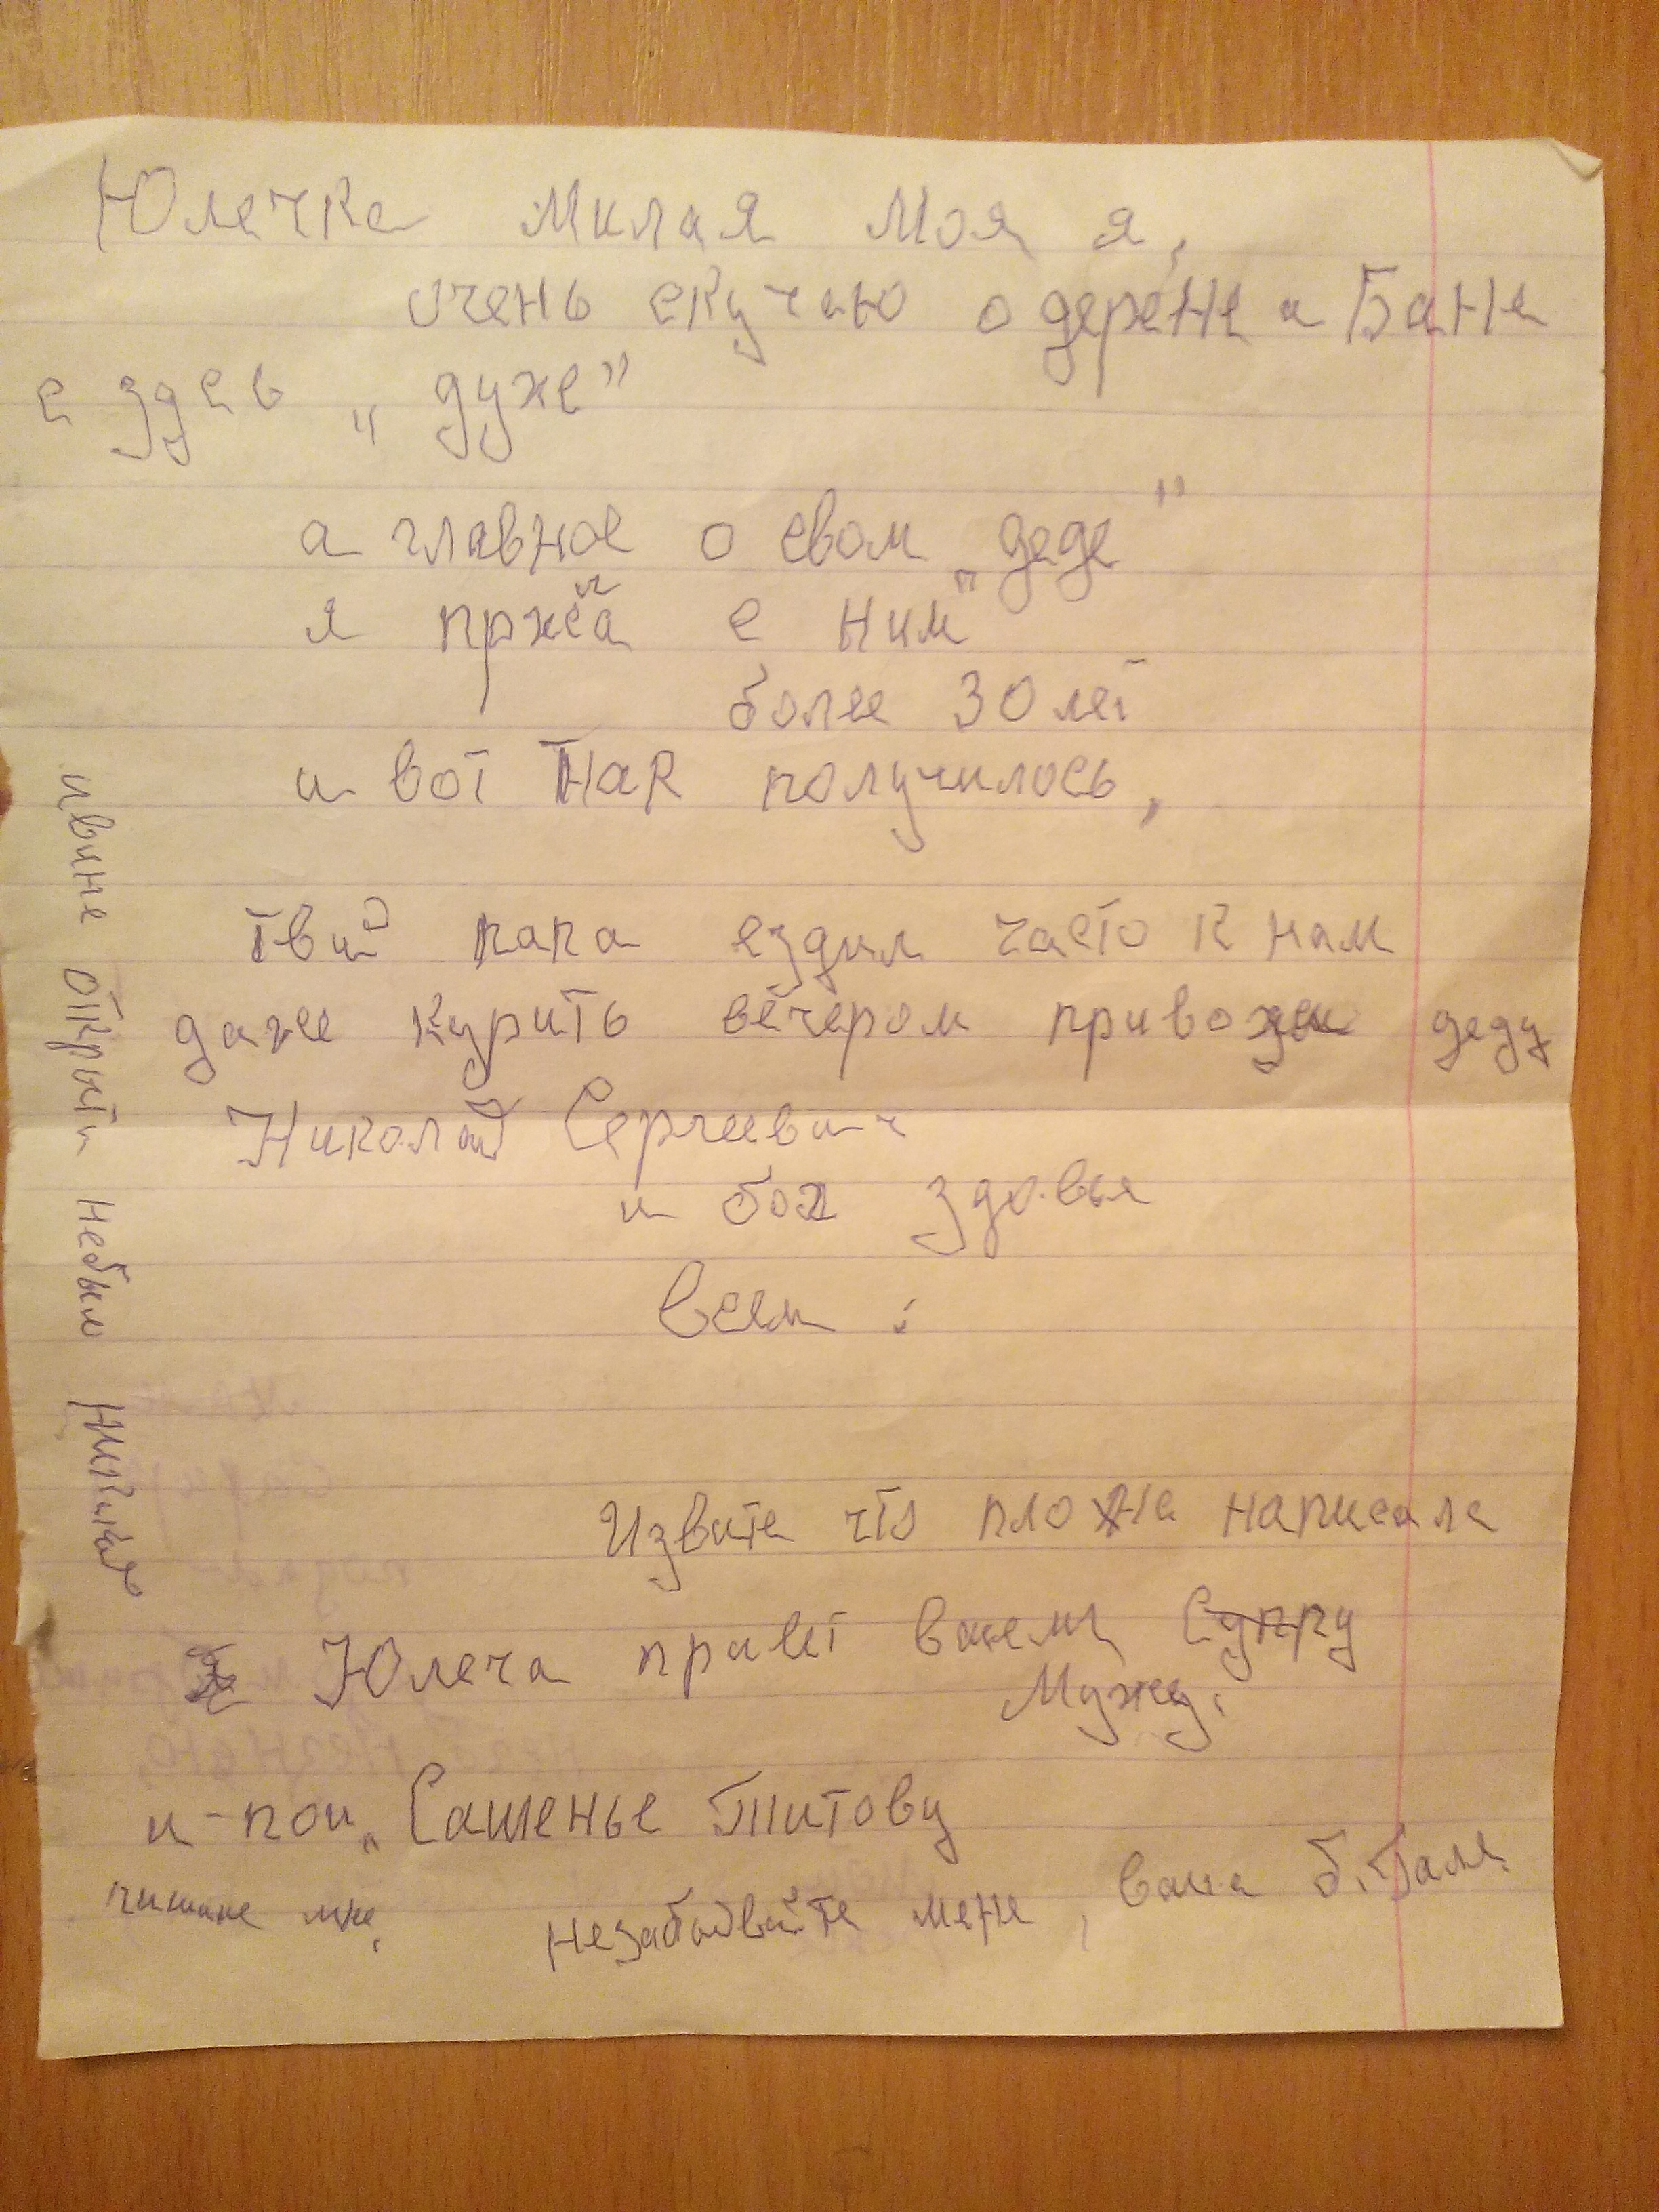 Юлечка милая моя я,
очень скучаю о дерене и Бане
а здесь „душе"
а главное о свом „деде"
я пржёа с ним
более 30 лет
и вот так получилось,
Твий папа ездил часто к нам
даже курить вечером привози деду
Николай Сергеевич
и бох здовья
всем :
Извите что плохо написала
Юлеча привет вашему Супру
Мужу.
и пои „Сашенье Титову
пишине мне, незабодвайте мене, ваша б. Галя.
ивине открыти небыло никаких